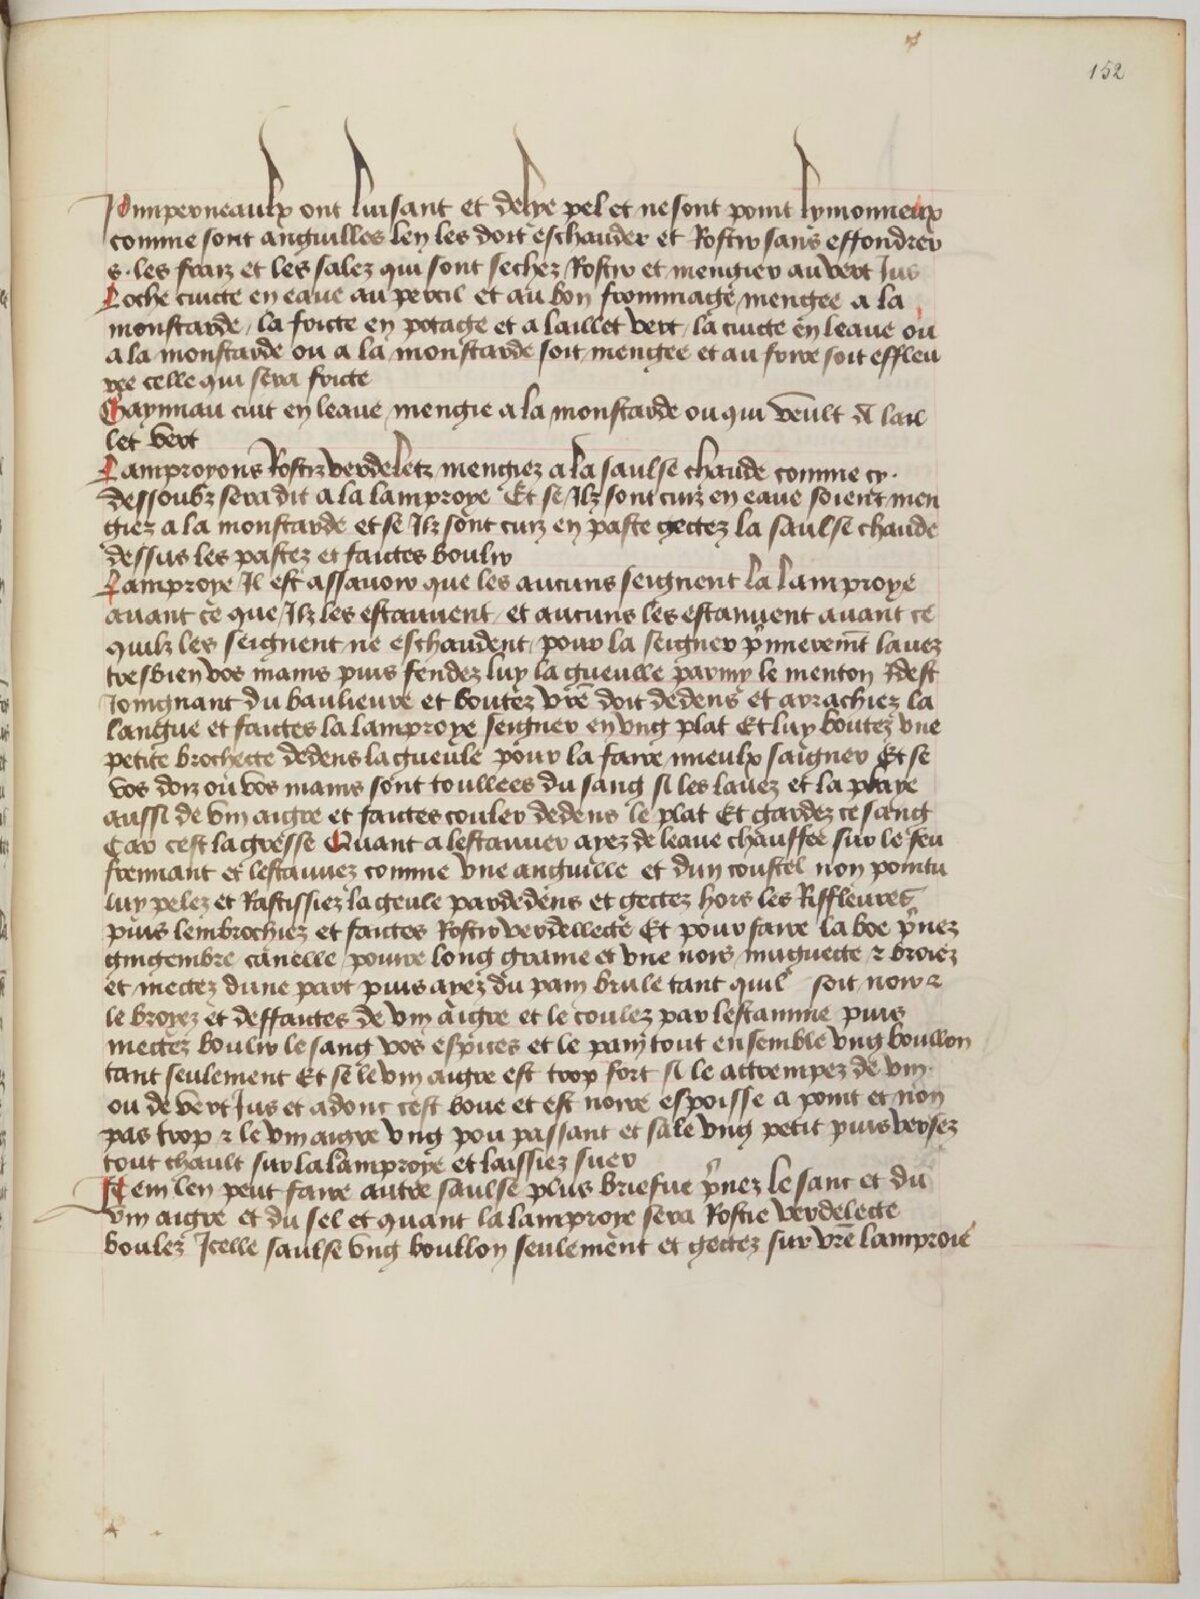 152
Pimperneaulx ont luisant et delye pel et ne sont point lymonneux
comme sont anguilles len les doit eschauder et Rostir sans effondrer
s. les fraiz et les salez qui sont sechez Rostir et mengier au vert Jus
Loche cuicte en eaue au percil et au bon frommage mengee a la
moustarde / la fricte en potage et a laillet vert / la cuicte en leaue ou
a la moustarde ou a la moustarde soit mengee et au frire soit effleu
ree celle qui sera fricte
Gaymau cuit en leaue mengie a la moustarde ou qui veult a lail
let vert
Lamproyons Rostiz verdeletz mengiez a la saulse chaude comme cy
dessoubz sera dit a la lamproye Et se Ilz sont cuiz en eaue soient men
giez a la moustarde et se Ilz sont cuiz en paste gectez la saulse chaude
dessus les pastez et faictes boulir
Lamproye Il est assavoir que les aucuns seignent la lamproye
avant ce que Ilz les estauvent / et aucuns les estauvent avant ce
quilz les seignent ne eschaudent / pour la seigner p̃mieremẽt lavez
tresbien vos mains puis fendez luy la gueulle parmy le menton Adest
Joingnant du baulieure et boutez vr̃e doit dedens et arrachiez la
langue et faictes la lamproye seigner en ung plat Et luy boutez une
petite brochecte dedens la gueule pour la faire mieulx saigner Et se
vos doiz ou vos mains sont toullees du sang si les lavez et la playe
aussi de vin aigre et faictes couler dedens le plat Et gardez ce sang
Car cest la gresse Quant a lestauver ayez de leaue chauffee sur le feu
fremiant et lestauvez comme une anguille et dun coustel non pointu
luy pelez et Rastissiez la geule pardedens et gectez hors les Riffleures
puis lembrochiez et faictes Rostir verdellecte Et pour faire la boe p̃nez
gingembre canelle poivre long graine et une nois muguecte ⁊ broiez
et mectez dune part puis ayez du pain brule tant quil soit noir ⁊
le broyez et deffaictes de vin aigre et le coulez par lestamine puis
mectez boulir le sang vos espices et le pain tout ensemble ung boullon
tant seulement Et se le vin aigre est trop fort si le actrempez de vin
ou de vert Jus et adonc cest boue et est noire espoisse a point et non
pas trop ⁊ le vin aigre ung pou passant et sale ung petit puis versez
tout chault sur la lamproye et laissiez suer
Item len peut faire autre saulse plus briefue p̃nez le sanc et du
vin aigre et du sel et quant la lamproye sera Rostie verdelecte
boulez Icelle saulse ung boullon seulement et gectez sur vr̃e lamproie